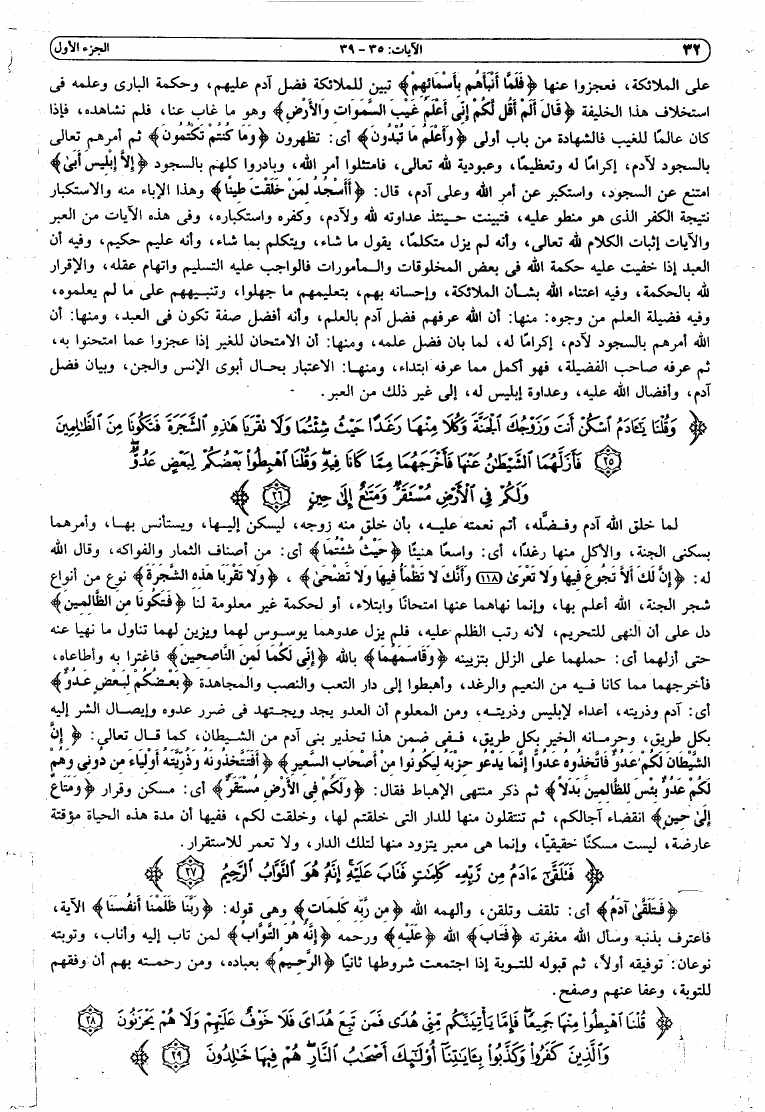 ٣٢ الآيات: ٣٥ - ٣٩ الجزء الأول
على الملائكة، فعجزوا عنها ﴿فَلَمَّا أَنْبَأَهُم بِأَسْمَائِهِمْ﴾ تبين للملائكة فضل آدم عليهم، وحكمة البارى وعلمه فى
استخلاف هذا الخليفة ﴿قَالَ أَلَمْ أَقُل لَّكُمْ إِنِّي أَعْلَمُ غَيْبَ السَّمَوَاتِ وَالأَرْضِ﴾ وهو ما غاب عنا، فلم نشاهده، فإذا
كان عالمًا للغيب فالشهادة من باب أولى ﴿وَأَعْلَمُ مَا تُبْدُونَ﴾ أى: تظهرون ﴿وَمَا كُنتُمْ تَكْتُمُونَ﴾ ثم أمرهم تعالى
بالسجود لآدم، إكرامًا له وتعظيمًا، وعبودية لله تعالى، فامتثلوا أمر الله، وبادروا كلهم بالسجود ﴿إِلاَّ إِبْلِيسَ أَبَىٰ﴾
امتنع عن السجود، واستكبر عن أمر الله وعلى آدم، قال: ﴿أَأَسْجُدُ لِمَنْ خَلَقْتَ طِينًا﴾ وهذا الإباء منه والاستكبار
نتيجة الكفر الذى هو منطو عليه، فتبينت حينئذ عداوته لله ولآدم، وكفره واستكباره، وفى هذه الآيات من العبر
والآيات إثبات الكلام لله تعالى، وأنه لم يزل متكلمًا، يقول ما شاء، ويتكلم بما شاء، وأنه عليم حكيم، وفيه أن
العبد إذا خفيت عليه حكمة الله فى بعض المخلوقات والمأمورات فالواجب عليه التسليم واتهام عقله، والإقرار
لله بالحكمة، وفيه اعتناء الله بشأن الملائكة، وإحسانه بهم، بتعليمهم ما جهلوا، وتنبيههم على ما لم يعلموه،
وفيه فضيلة العلم من وجوه: منها: أن الله عرفهم فضل آدم بالعلم، وأنه أفضل صفة تكون فى العبد، ومنها: أن
الله أمرهم بالسجود لآدم، إكرامًا له، لما بان فضل علمه، ومنها: أن الامتحان للغير إذا عجزوا عما امتحنوا به،
ثم عرفه صاحب الفضيلة، فهو أكمل مما عرفه ابتداء، ومنها: الاعتبار بحال أبوى الإنس والجن، وبيان فضل
آدم، وأفضال الله عليه، وعداوة إبليس له، إلى غير ذلك من العبر.
﴿ وَقُلْنَا يَـٰٓـَٔادَمُ ٱسْكُنْ أَنتَ وَزَوْجُكَ ٱلْجَنَّةَ وَكُلَا مِنْهَا رَغَدًا حَيْثُ شِئْتُمَا وَلَا تَقْرَبَا هَـٰذِهِ ٱلشَّجَرَةَ فَتَكُونَا مِنَ ٱلظَّـٰلِمِينَ
٣٥ فَأَزَلَّهُمَا ٱلشَّيْطَـٰنُ عَنْهَا فَأَخْرَجَهُمَا مِمَّا كَانَا فِيهِ ۖ وَقُلْنَا ٱهْبِطُوا۟ بَعْضُكُمْ لِبَعْضٍ عَدُوٌّ ۖ
وَلَكُمْ فِى ٱلْأَرْضِ مُسْتَقَرٌّ وَمَتَـٰعٌ إِلَىٰ حِينٍ ٣٦ ﴾
لما خلق الله آدم وفضَّله، أتم نعمته عليه، بأن خلق منه زوجه، ليسكن إليها، ويستأنس بها، وأمرهما
بسكنى الجنة، والأكل منها رغدًا، أى: واسعًا هنيئًا ﴿حَيْثُ شِئْتُمَا﴾ أى: من أصناف الثمار والفواكه، وقال الله
له: ﴿إِنَّ لَكَ أَلاَّ تَجُوعَ فِيهَا وَلا تَعْرَىٰ (١١٨) وَأَنَّكَ لا تَظْمَأُ فِيهَا وَلا تَضْحَىٰ﴾ ، ﴿وَلا تَقْرَبَا هَذِهِ الشَّجَرَةَ﴾ نوع من أنواع
شجر الجنة، الله أعلم بها، وإنما نهاهما عنها امتحانًا وابتلاء، أو لحكمة غير معلومة لنا ﴿فَتَكُونَا مِنَ الظَّالِمِينَ﴾
دل على أن النهى للتحريم، لأنه رتب الظلم عليه، فلم يزل عدوهما يوسوس لهما ويزين لهما تناول ما نهيا عنه
حتى أزلهما أى: حملهما على الزلل بتزيينه ﴿وَقَاسَمَهُمَا﴾ بالله ﴿إِنِّي لَكُمَا لَمِنَ النَّاصِحِينَ﴾ فاغترا به وأطاعاه،
فأخرجهما مما كانا فيه من النعيم والرغد، وأهبطوا إلى دار التعب والنصب والمجاهدة ﴿بَعْضُكُمْ لِبَعْضٍ عَدُوٌّ﴾
أى: آدم وذريته، أعداء لإبليس وذريته، ومن المعلوم أن العدو يجد ويجتهد فى ضرر عدوه وإيصال الشر إليه
بكل طريق، وحرمانه الخير بكل طريق، ففى ضمن هذا تحذير بنى آدم من الشيطان، كما قال تعالى: ﴿ إِنَّ
الشَّيْطَانَ لَكُمْ عَدُوٌّ فَاتَّخِذُوهُ عَدُوًّا إِنَّمَا يَدْعُو حِزْبَهُ لِيَكُونُوا مِنْ أَصْحَابِ السَّعِيرِ﴾ ﴿أَفَتَتَّخِذُونَهُ وَذُرِّيَّتَهُ أَوْلِيَاءَ مِن دُونِي وَهُمْ
لَكُمْ عَدُوٌّ بِئْسَ لِلظَّالِمِينَ بَدَلاً﴾ ثم ذكر منتهى الإهباط فقال: ﴿وَلَكُمْ فِي الأَرْضِ مُسْتَقَرٌّ﴾ أى: مسكن وقرار ﴿وَمَتَاعٌ
إِلَىٰ حِينٍ﴾ انقضاء آجالكم، ثم تنتقلون منها للدار التى خلقتم لها، وخلقت لكم، ففيها أن مدة هذه الحياة مؤقتة
عارضة، ليست مسكنًا حقيقيًا، وإنما هى معبر يتزود منها لتلك الدار، ولا تعمر للاستقرار.
﴿ فَتَلَقَّىٰٓ ءَادَمُ مِن رَّبِّهِۦ كَلِمَـٰتٍ فَتَابَ عَلَيْهِ ۚ إِنَّهُۥ هُوَ ٱلتَّوَّابُ ٱلرَّحِيمُ ٣٧ ﴾
﴿فَتَلَقَّىٰ آدَمُ﴾ أى: تلقف وتلقن، وألهمه الله ﴿مِن رَّبِّهِ كَلِمَاتٍ﴾ وهى قوله: ﴿رَبَّنَا ظَلَمْنَا أَنفُسَنَا﴾ الآية،
فاعترف بذنبه وسأل الله مغفرته ﴿فَتَابَ﴾ الله ﴿عَلَيْهِ﴾ ورحمه ﴿إِنَّهُ هُوَ التَّوَّابُ﴾ لمن تاب إليه وأناب، وتوبته
نوعان: توفيقه أولاً، ثم قبوله للتوبة إذا اجتمعت شروطها ثانيًا ﴿الرَّحِيمُ﴾ بعباده، ومن رحمته بهم أن وفقهم
للتوبة، وعفا عنهم وصفح.
﴿ قُلْنَا ٱهْبِطُوا۟ مِنْهَا جَمِيعًا ۖ فَإِمَّا يَأْتِيَنَّكُم مِّنِّى هُدًى فَمَن تَبِعَ هُدَاىَ فَلَا خَوْفٌ عَلَيْهِمْ وَلَا هُمْ يَحْزَنُونَ ٣٨
وَٱلَّذِينَ كَفَرُوا۟ وَكَذَّبُوا۟ بِـَٔايَـٰتِنَآ أُو۟لَـٰٓئِكَ أَصْحَـٰبُ ٱلنَّارِ ۖ هُمْ فِيهَا خَـٰلِدُونَ ٣٩ ﴾